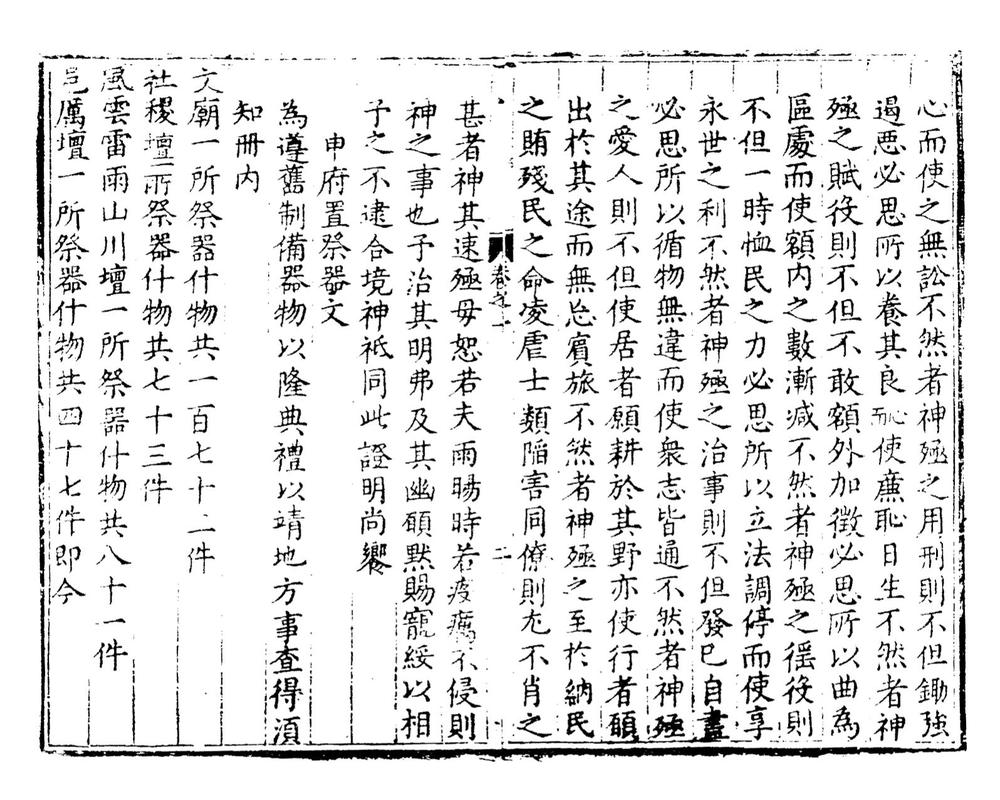 心而使之無訟不然者神殛之用刑則不但鋤強
遏惡必思所以養其良恥使廉恥日生不然者神
殛之賦役則不但不敢額外加徵必思所以曲為
區處而使額內之數漸減不然者神殛之徭役則
不但一時恤民之力必思所以立法調停而使享
永世之利不然者神殛之治事則不但發已自盡
必思所以循物無違而使衆志皆通不然者神殛
之愛人則不但使居者願耕於其野亦使行者願
出於其途而無怨賓旅不然者神殛之至於納民
之賄殘民之命凌虐士類陷害同僚則尤不肖之
卷之一
二
甚者神其速殛毋恕若夫雨暘時若疫癘不侵則
神之事也予治其明弗及其幽願默賜寵綏以相
子之不逮合境神祗同此證明尚饗
申府置祭器文
為遵舊制備器物以隆典禮以靖地方事查得須
知冊內
文廟一所祭器什物共一百七十二件
社稷壇一所祭器什物共七十三件
風雲雷雨山川壇一所祭器什物共八十一件
邑厲壇一所祭器什物共四十七件即今